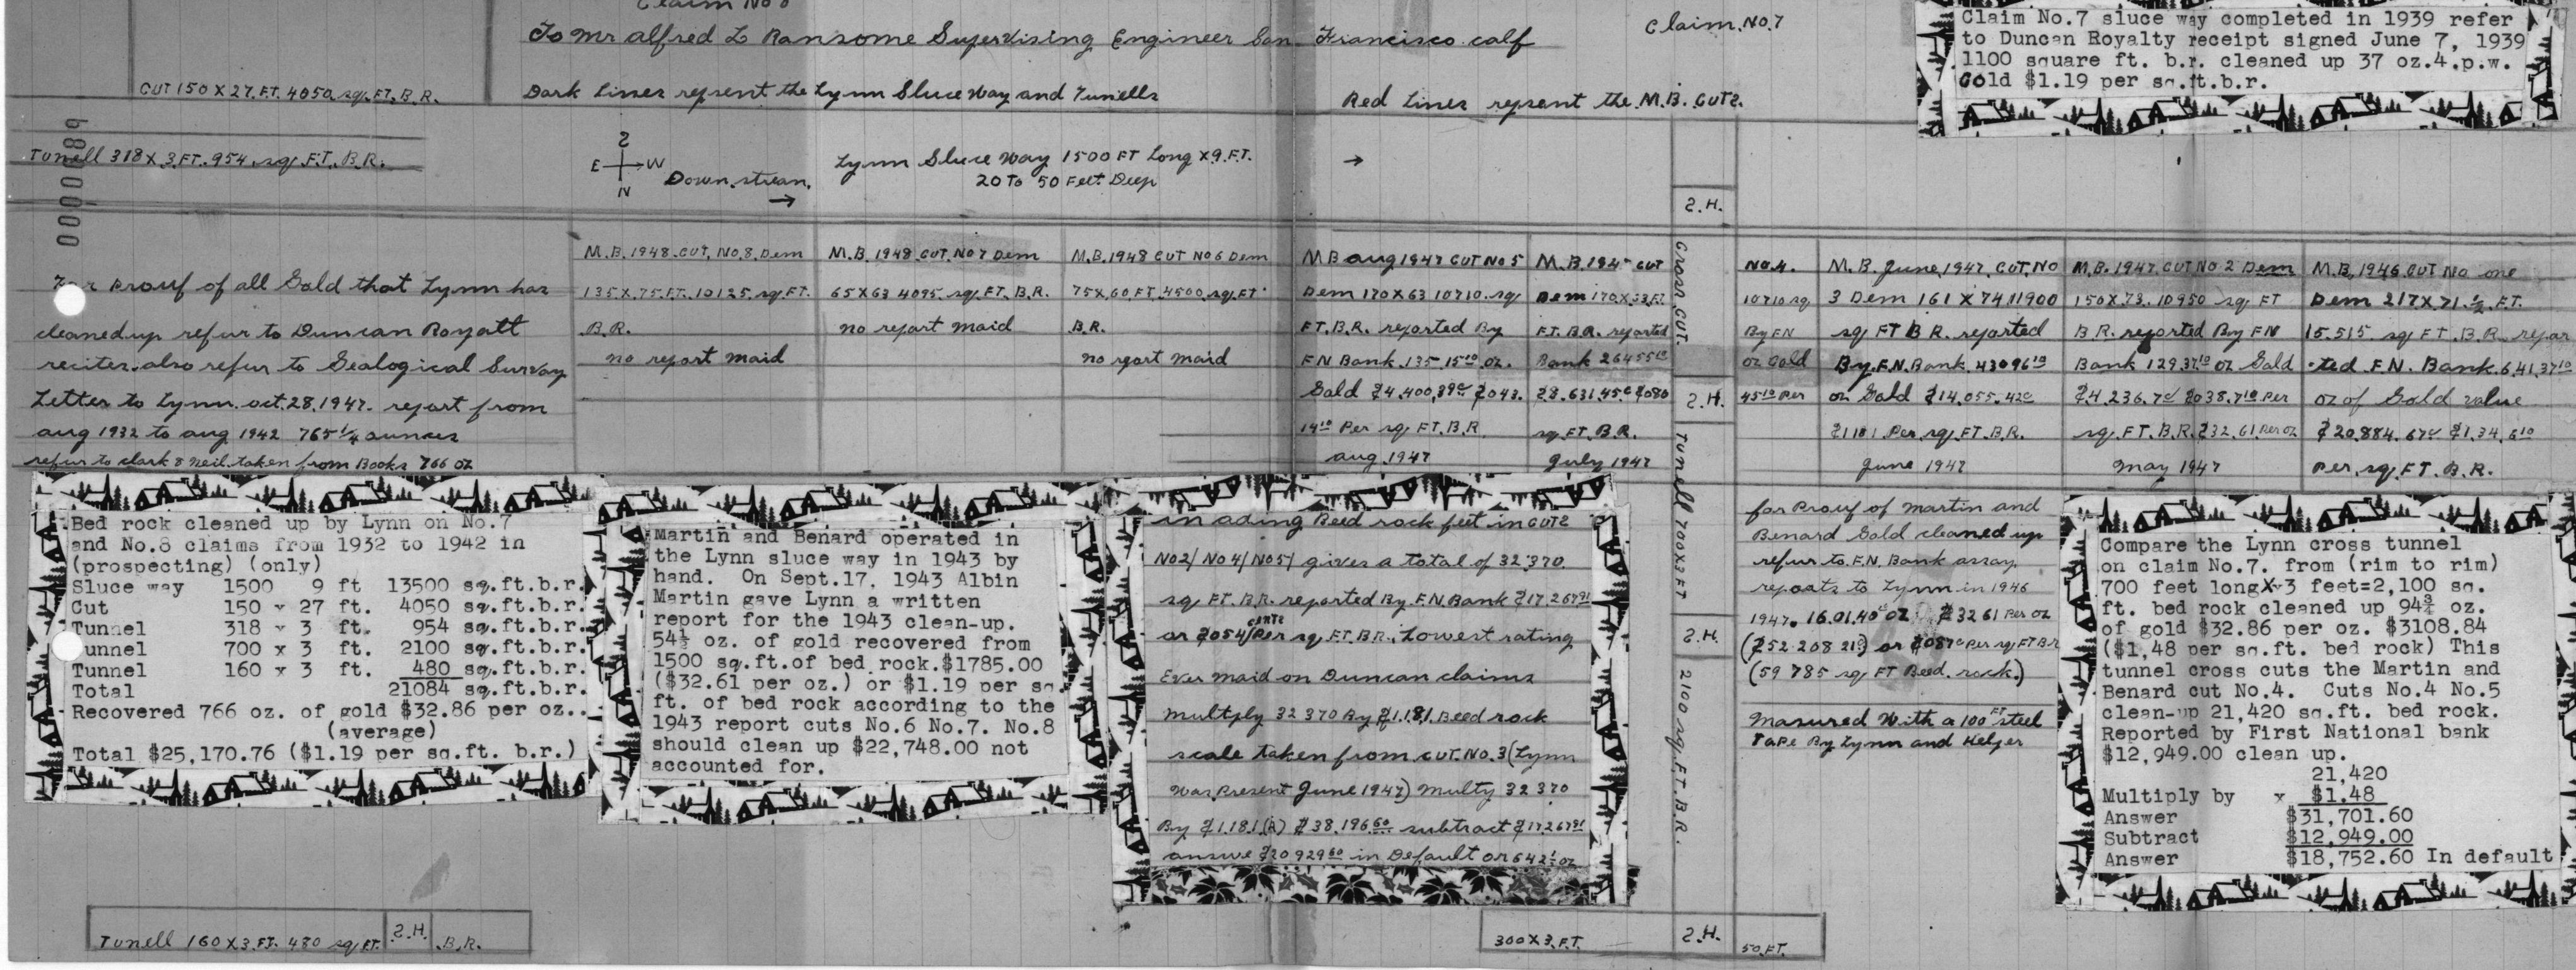 Claim No 8
To Mr alfred L Ransome Supervising Engineer San Francisco calf
Claim.No.7
CUT 150 X 27.FT. 4050 sq.FT. B.R.
Dark Lines repsent the Lynn Sluce Way and Tunells
Red Lines repsent the M.B. CUTS.
Claim No.7 sluce way completed in 1939 refer
to Duncan Royalty receipt signed June 7, 1939
1100 square ft. b.r. cleaned up 37 oz.4.p.w.
Gold $1.19 per sq.ft.b.r.
000089
Tunell 318 X 3 FT. 954 sq F.T. B.R.
S
E W
N
Down.stream.
Lynn Sluce Way 1500 FT Long X 9.F.T.
20 To 50 Feet Deep
S.H.
For Prouf of all Gold that Lynn has
cleaned up refur to Duncan Royalt
reciter. also refur to Gealogical Survay
Letter to Lynn. oct. 28. 1947. repart from
aug 1932 to aug 1942 765 1/4 ounces
refur to clark & Neil taken from Books 766 oz
M.B. 1948. CUT. NO. 8. Dem
135 X 75. FT. 10125. sq. FT.
B.R.
no repart maid
M.B. 1948 CUT. NO 7 Dem
65 X 63 4095 sq. FT. B.R.
no repart maid
M.B. 1948 CUT NO 6 Dem
75 X 60 FT. 4500 sq. FT.
B.R.
no repart maid
M B aug 1947 CUT NO 5
Dem 170 X 63 10710. sq
FT. B.R. reported By
F.N Bank. 135-15 10 oz.
Gold $4,400,39c $043.
14 10 Per sq FT. B.R.
aug. 1947
M.B. 194 CUT
Dem 170 X 33 FT
FT. B.R. reported
Bank 26455
$8.631.45c $080
sq FT. B.R.
July 1947
Cross CUT.
S.H.
Tunell 700 X 3. FT
S.H.
2100 sq. F.T. B.R.
NO.4.
10710 sq
By F N
oz Gold
45 10 Per
M.B. June, 1947. CUT. NO
3 Dem 161 X 74 11900
sq FT B R. reported
By. F.N. Bank. 43096 10
oz Gold $14,055.42c
$1181 Per sq. FT. B.R.
June 1947
M.B. 1947. CUT NO 2 Dem
150 X 73. 10950 sq FT
B R. reported By F N
Bank 129.37 10 oz Gold
$4,236.7c $038.7 10 Per
sq. FT. B.R. $32.61 Per oz
may 1947
M.B. 1946. CUT No one
Dem 217 X 71. 1/2 FT.
15.515. sq FT. B.R. repar
ted F.N. Bank. 6,41.37 10
oz of Gold value
$20,884.67c $1.34, 6 10
Per, sq. F.T. B.R.
Bed rock cleaned up by Lynn on No.7
and No.8 claims from 1932 to 1942 in
(prospecting) (only)
Sluce way 1500 9 ft 13500 sq.ft.b.r.
Cut 150 x 27 ft. 4050 sq.ft.b.r.
Tunnel 318 x 3 ft. 954 sq.ft.b.r.
unnel 700 x 3 ft. 2100 sq.ft.b.r.
Tunnel 160 x 3 ft. 480 sq.ft.b.r.
Total 21084 sq.ft.b.r.
Recovered 766 oz. of gold $32.86 per oz..
(average)
Total $25,170.76 ($1.19 per sq.ft. b.r.)
Martin and Benard operated in
the Lynn sluce way in 1943 by
hand. On Sept.17. 1943 Albin
Martin gave Lynn a written
report for the 1943 clean-up.
54½ oz. of gold recovered from
1500 sq.ft.of bed rock.$1785.00
($32.61 per oz.) or $1.19 per sq.
ft. of bed rock according to the
1943 report cuts No.6 No.7. No.8
should clean up $22,748.00 not
accounted for.
in ading Beed rock feet in CUTS
NO2/ NO4/ NO5/ gives a total of 32,370.
sq FT. B.R. reported By. F.N. Bank $17.267 91
or $054/ cents Per sq FT. B.R. Lowest rating
Ever maid on Duncan claims
multply 32 370 By $1.181 Beed rock
scale taken from CUT. NO. 3 (Lynn
was, Present June 1947) multy 32 370
By $1.181 (A) $38,196 60 subtract $17267 91
answe $20929 60 in Default or 642 1/2 oz
for Prouf of martin and
Benard Gold cleaned up
refur to. F.N. Bank assay,
repoats to Lynn in 1946
1947. 16.01.40c oz $32 61 Per oz
($52 208 21c) or $087c Per sq FT B.R
(59 785 sq FT Beed. rock.)
Masured With a 100 FT steel
Tape By Lynn and Helper
Compare the Lynn cross tunnel
on claim No.7. from (rim to rim)
700 feet long X 3 feet=2,100 sq.
ft. bed rock cleaned up 94¾ oz.
of gold $32.86 per oz. $3108.84
($1,48 per sq.ft. bed rock) This
tunnel cross cuts the Martin and
Benard cut No.4. Cuts No.4 No.5
clean-up 21,420 sq.ft. bed rock.
Reported by First National bank
$12,949.00 clean up.
21,420
Multiply by x $1.48
Answer $31,701.60
Subtract $12,949.00
Answer $18,752.60 In default
Tunell 160 X 3. FT. 480 sq FT. S.H. B.R.
300 X 3. F.T. S.H. 50. F.T.